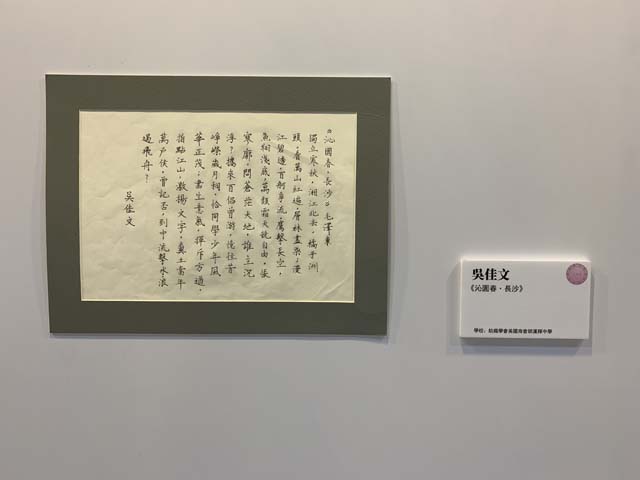 《沁園春·長沙》毛澤東
獨立寒秋，湘江北去，橘子洲
頭。看萬山紅遍，層林盡染；漫
江碧透，百舸爭流。鷹擊長空，
魚翔淺底，萬類霜天競自由。悵
寥廓，問蒼茫大地，誰主沉
浮？攜來百侶曾游，憶往昔
崢嶸歲月稠。恰同學少年，風
華正茂；書生意氣，揮斥方遒。
指點江山，激揚文字，糞土當年
萬戶侯。曾記否，到中流擊水，浪
遏飛舟？
吳佳文
吳佳文
《沁園春·長沙》
學校：紡織學會美國商會胡漢輝中學